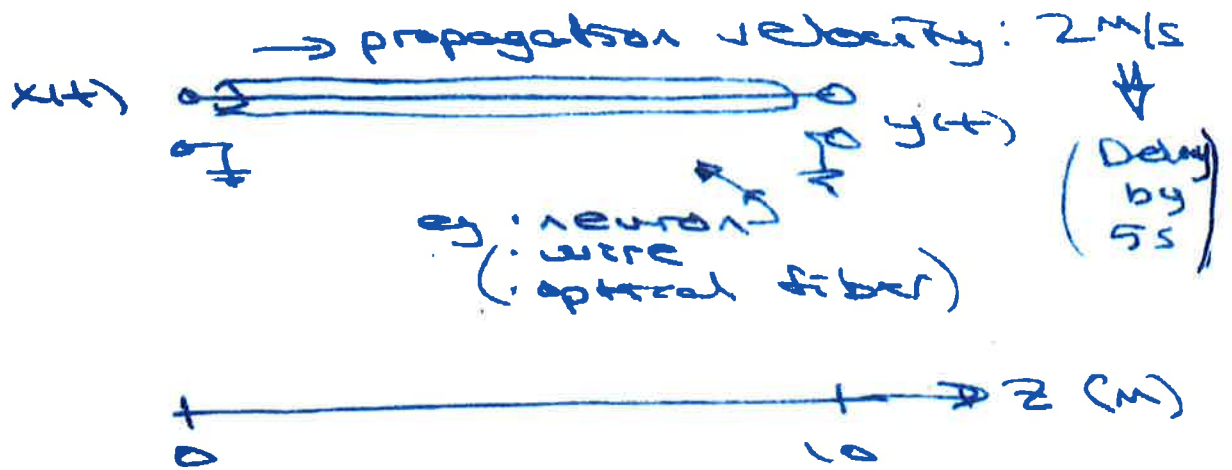 → propagation velocity: 2 m/s
x(t)
y(t)
(Delay
by
5s)
eg: neuron
(· wire
· optical fiber)
z (m)
0 10